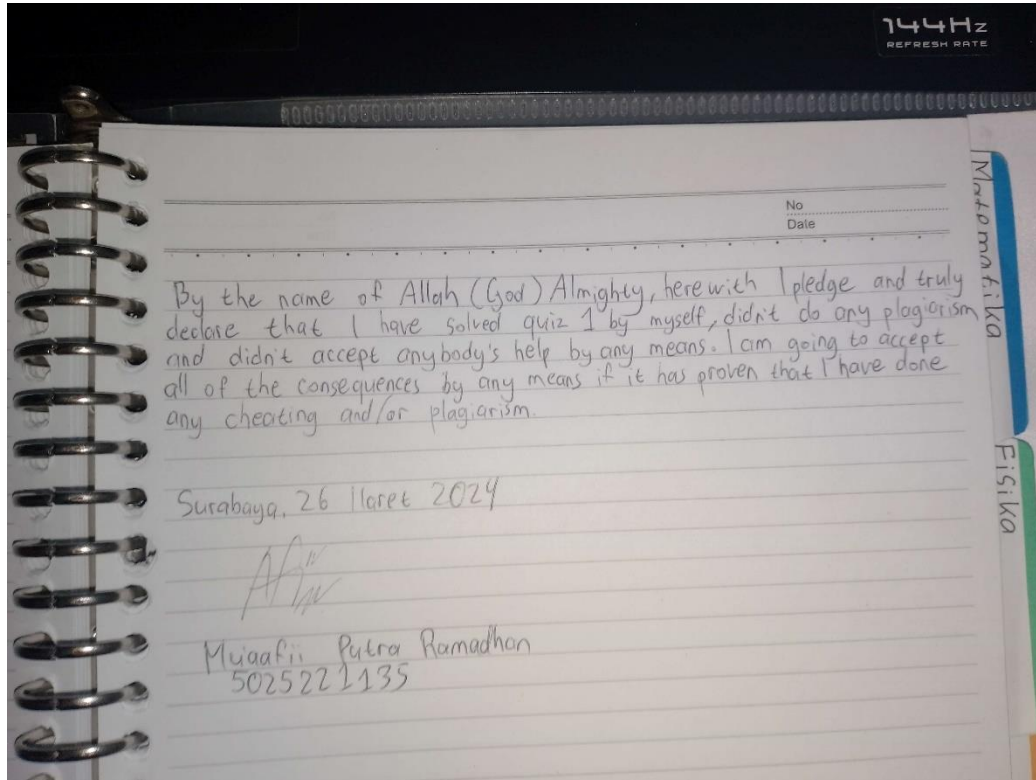 144Hz
REFRESH RATE
No
Date
By the name of Allah (God) Almighty, here with I pledge and truly
declare that I have solved quiz 1 by myself, didn't do any plagiarism
and didn't accept anybody's help by any means. I am going to accept
all of the consequences by any means if it has proven that I have done
any cheating and/or plagiarism.
Surabaya, 26 Maret 2024
Putra Ramadhan
5025221135
Matematika
Fisika